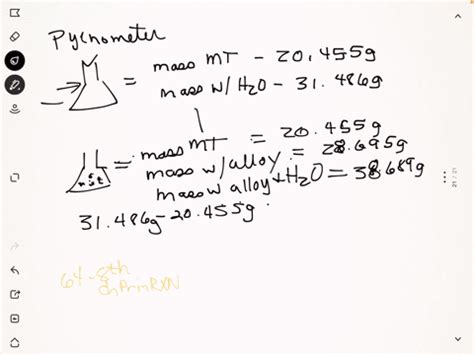 Pycnometer
= mass MT - 20.455g
mass w/ H2O - 31.486g
= mass MT = 20.455g
mass w/alloy = 28.695g
mass w alloy + H2O = 38.689g
31.486g-20.455g
64-8th
21 / 21